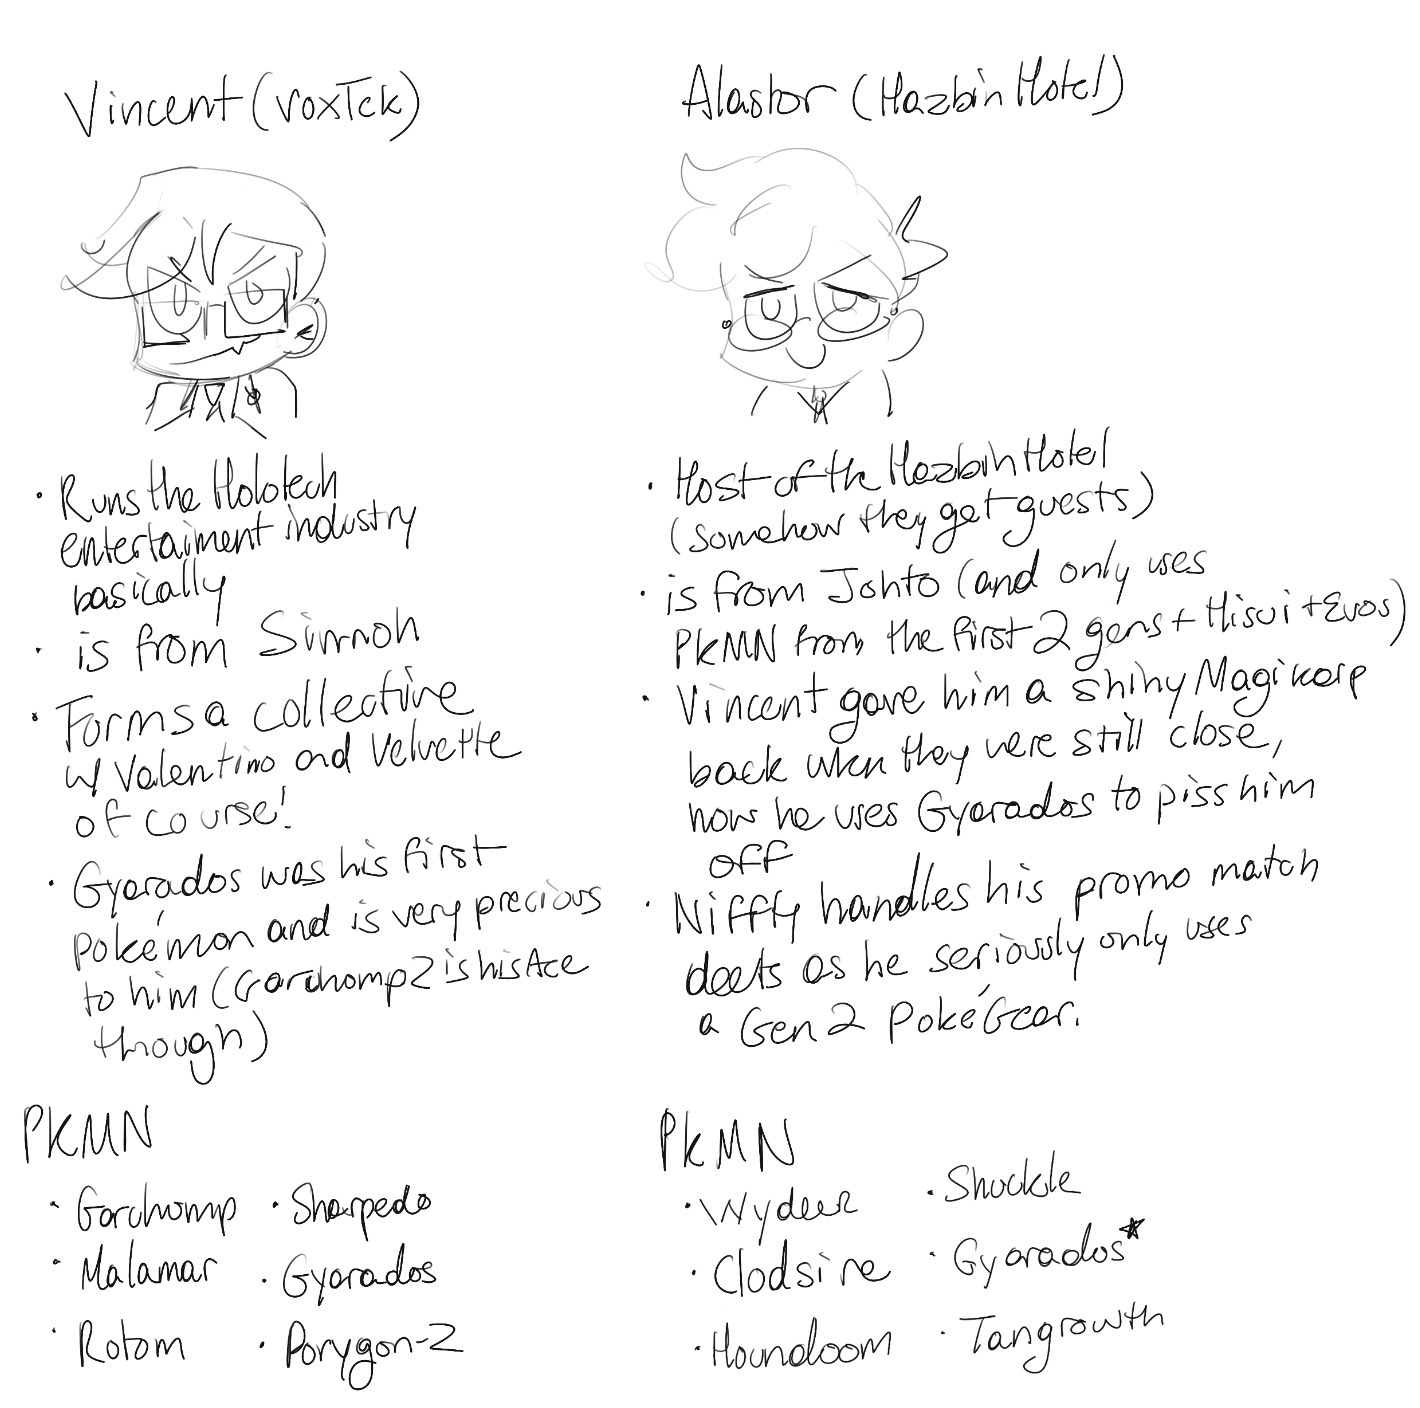 Vincent (VoxTek)
• Runs the Holotech
entertaiment industry
basically
• is from Sinnoh
• Forms a collective
w/ Valentino and Velvette
of course!
• Gyarados was his first
pokémon and is very precious
to him (Garchomp Z is his Ace
though)
PKMN
• Garchomp
• Sharpedo
• Malamar
• Gyarados
• Rotom
• Porygon-Z
Alastor (Hazbin Hotel)
• Host of the Hazbin Hotel
(somehow they get guests)
• is from Johto (and only uses
PKMN from the first 2 gens + Hisui + Evos)
• Vincent gave him a shiny Magikarp
back when they were still close,
now he uses Gyarados to piss him
off
• Niffty handles his promo match
deets as he seriously only uses
a Gen 2 PokéGear.
PKMN
• Wydeer
• Shuckle
• Clodsire
• Gyarados★
• Houndoom
• Tangrowth